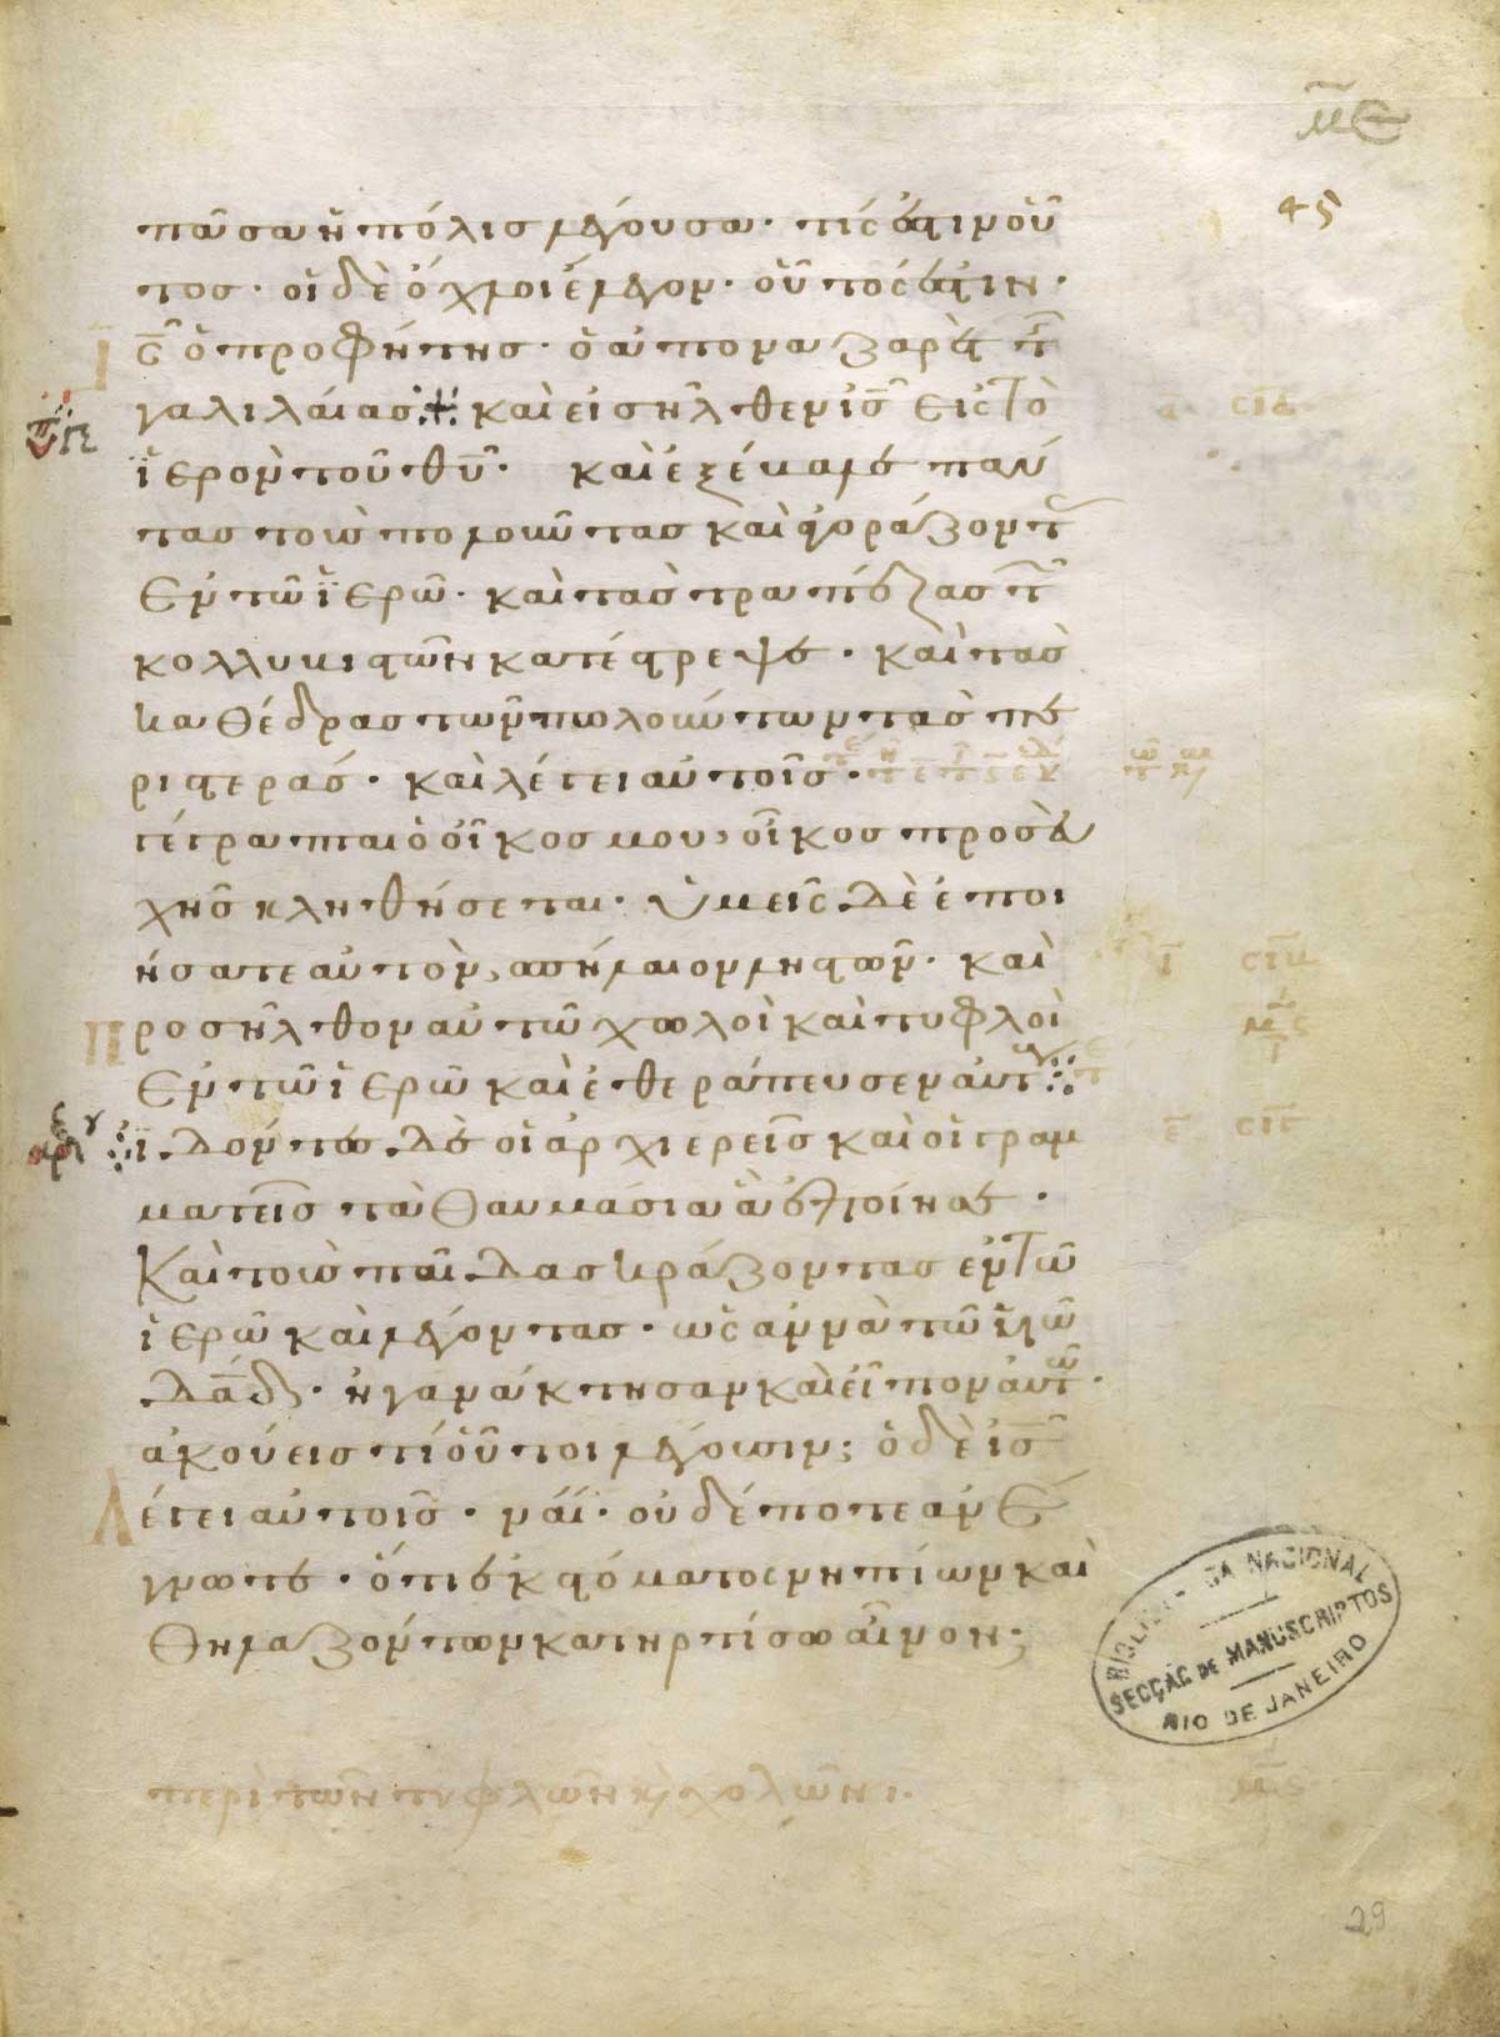 με
45
πᾶσα ἡ πόλις λέγουσα· τίς ἐστιν οὗ
τος· οἱ δὲ ὄχλοι ἔλεγον· οὗτός ἐστιν·
ις̅ ὁ προφήτης· ὁ ἀπο ναζαρὲτ τ͂
γαλιλαίας· καὶ εἰσῆλθεν ὁ ις̅ εἰς τὸ
ἱερὸν τοῦ θυ̅· καὶ ἐξέβαλε πάν
τας τοὺς πολοῦντας καὶ ἀγοράζοντ
ἐν τῶ ἱερῶ· καὶ τὰς τραπέζας τ͂
κολλυβιστῶν κατέστρεψε· καὶ τὰς
καθέδρας τῶν πωλούντων τὰς πε
ριστεράς· καὶ λέγει αὐτοῖς·
γέγραπται ὁ οἶκος μου, οἶκος προσευ
χῆς κληθήσεται· ὑμεῖς δὲ ἐποι
ήσατε αὐτὸν, σπήλαιον ληστῶν· καὶ
προσῆλθον αὐτῶ χωλοὶ καὶ τυφλοὶ
ἐν τῶ ἱερῶ καὶ ἐθεράπευσεν αὐτ
ἰδόντες δὲ οἱ ἀρχιερεῖς καὶ οἱ γραμ
ματεῖς τὰ θαυμάσια ἃ ἐποίησε·
Καὶ τοὺς παῖδας κράζοντας ἐν τῶ
ἱερῶ καὶ λέγοντας· ὡς ἀννὰ τῶ υἱῶ
δαδ̅· ἠγανάκτησαν καὶ εἶπον αὐτῶ·
ἀκούεις τί οὗτοι λέγουσιν; ὁ δὲ ις̅
λέγει αὐτοῖς· ναί· οὐδέποτε ἀνέ
γνωτε· ὅτι ἐκ στόματος νηπίων καὶ
θηλαζόντων κατηρτίσω αἶνον;
περὶ τῶν τυφλῶν κ χολῶν·
BIBLIOTHECA NACIONAL
SECÇÃO DE MANUSCRIPTOS
RIO DE JANEIRO
29